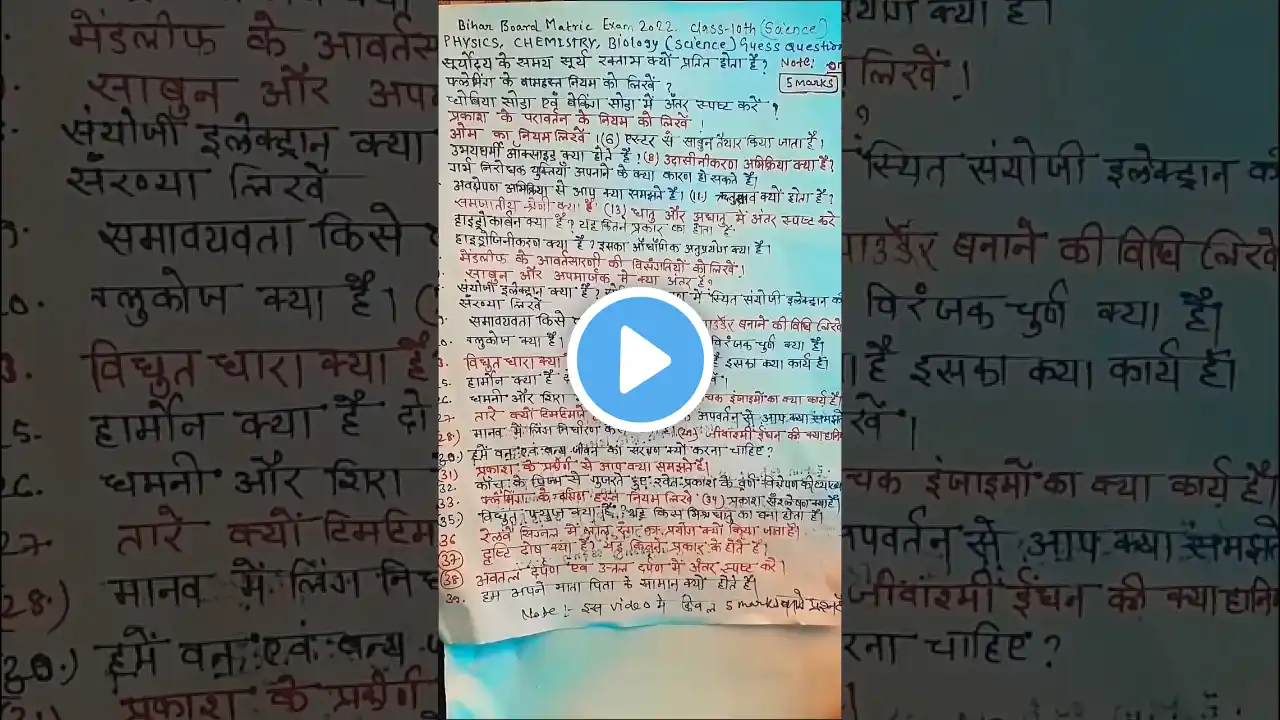 Bihar Board Matric Exam 2022. Class-10th (Science)
PHYSICS, CHEMISTRY, Biology (science) Guess Question
सूर्योदय के समय सूर्य रक्ताभ क्यों प्रतित होता है? Note:
5 marks
फ्लेमिंग के वामहस्त नियम को लिखें ?
सोडा एवं बेकिंग सोडा में अंतर स्पष्ट करें ?
प्रकाश के परावर्तन के नियम को लिखें !
ओम का नियम लिखें ।(6) एस्टर से साबुन तैयार किया जाता है।
उभयधर्मी ऑक्साइड क्या होते है ?(8) उदासीनीकरण अभिक्रिया क्या है?
गर्भ निरोधक युक्तियाँ अपनाने के क्या कारण हो सकते हैं।
अवक्षेपण अभिक्रिया से आप क्या समझते है। (11) क्यों होता है?
समजातीय श्रेणी क्या है (13) धातु और अधातु में अंतर स्पष्ट करे
हाइड्रोकार्बन क्या है? यह कितने प्रकार का होता है
हाइड्रोजिनीकरण क्या है? इसका औद्योगिक अनुप्रयोग क्या है।
मेंडलीफ के आवर्तसारणी की विसंगतियों को लिखें।
साबुन और अपमार्जक में क्या अंतर है?
संयोजी इलेक्ट्रान क्या है? में स्थित संयोजी इलेक्ट्रान की
संख्या लिखें
समावयवता किसे पाउडर बनाने की विधि लिखें
ग्लुकोज क्या है। विरंजक चुर्ण क्या है।
विधुत धारा क्या है इसका क्या कार्य है।
25. हार्मोन क्या है दो लिखें।
26. धमनी और शिरा चक इंजाइमों का क्या कार्य है।
27 तारे क्यों टिमटिमाते के अपवर्तन से आप क्या समझते
28.) मानव में लिंग निर्धारण (29.) जीवाश्मी ईंधन की क्या हानि
30.) हमें वन एवं वन्य जीवन का संरक्षण क्यों करना चाहिए?
31) प्रकाश के प्रकीर्ण से आप क्या समझते है।
32. काँच के प्रिज्म से गुजरते हुए श्वेत प्रकाश के वर्ण विक्षेपण की
33. फ्लेमिंग के दक्षिण हस्त नियम लिखें (34) प्रकाश संश्लेषण क्या है?
35.) विधुत फ्यूज क्या है? यह किस मिश्रधातु का बना होता है।
36 रेलवे सिग्नल में लाल रंग का प्रयोग क्यों किया जाता है।
(37) दृष्टि दोष क्या है? यह कितने प्रकार के होते है।
(38) अवतल दर्पण एवं उत्तल दर्पण में अंतर स्पष्ट करे।
39. हम अपने माता पिता के सामान क्यों होते है।
Note:- इस video मे केवल 5 marks वाले प्रश्नों